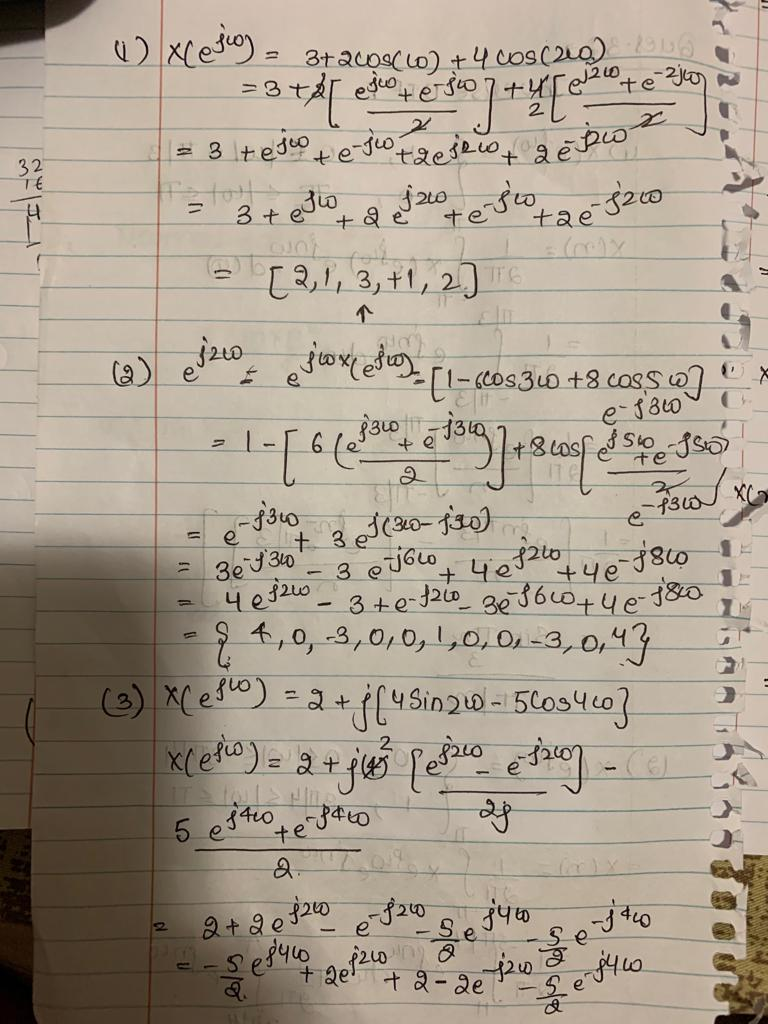 (1) X(e^jω) = 3+2cos(ω)+4cos(2ω)
= 3+2[(e^jω+e^-jω)/2]+4 2[(e^j2ω+e^-2jω)/2]
= 3+e^jω+e^-jω+2e^j2ω+2e^-j2ω
32
16
4
= 3+e^jω+2e^j2ω+e^-jω+2e^-j2ω
= [2,1,3,+1,2]
↑
(2) e^j2ω = e^jωx(e^jω) = [1-6cos3ω+8cos5ω]
e^-j3ω
= 1-[6((e^j3ω+e^-j3ω)/2)]+8cos[(e^j5ω+e^-j5ω)/2
e^-j3ω
= e^-j3ω+3e^j(3ω-j3ω)
= 3e^-j3ω-3e^-j6ω+4e^j2ω+4e^-j8ω
= 4e^j2ω-3+e^-j2ω-3e^-j6ω+4e^-j8ω
= {4,0,-3,0,0,1,0,0,-3,0,4}
(3) X(e^jω) = 2+j[4Sin2ω-5Cos4ω]
X(e^jω) = 2+j(4)^2[(e^j2ω-e^-j2ω)/2j]-
5 (e^j4ω+e^-j4ω)/2.
= 2+2e^j2ω-e^-j2ω-5/2e^j4ω-5/2e^-j4ω
= -5/2e^j4ω+2e^j2ω+2-2e^-j2ω-5/2e^-j4ω